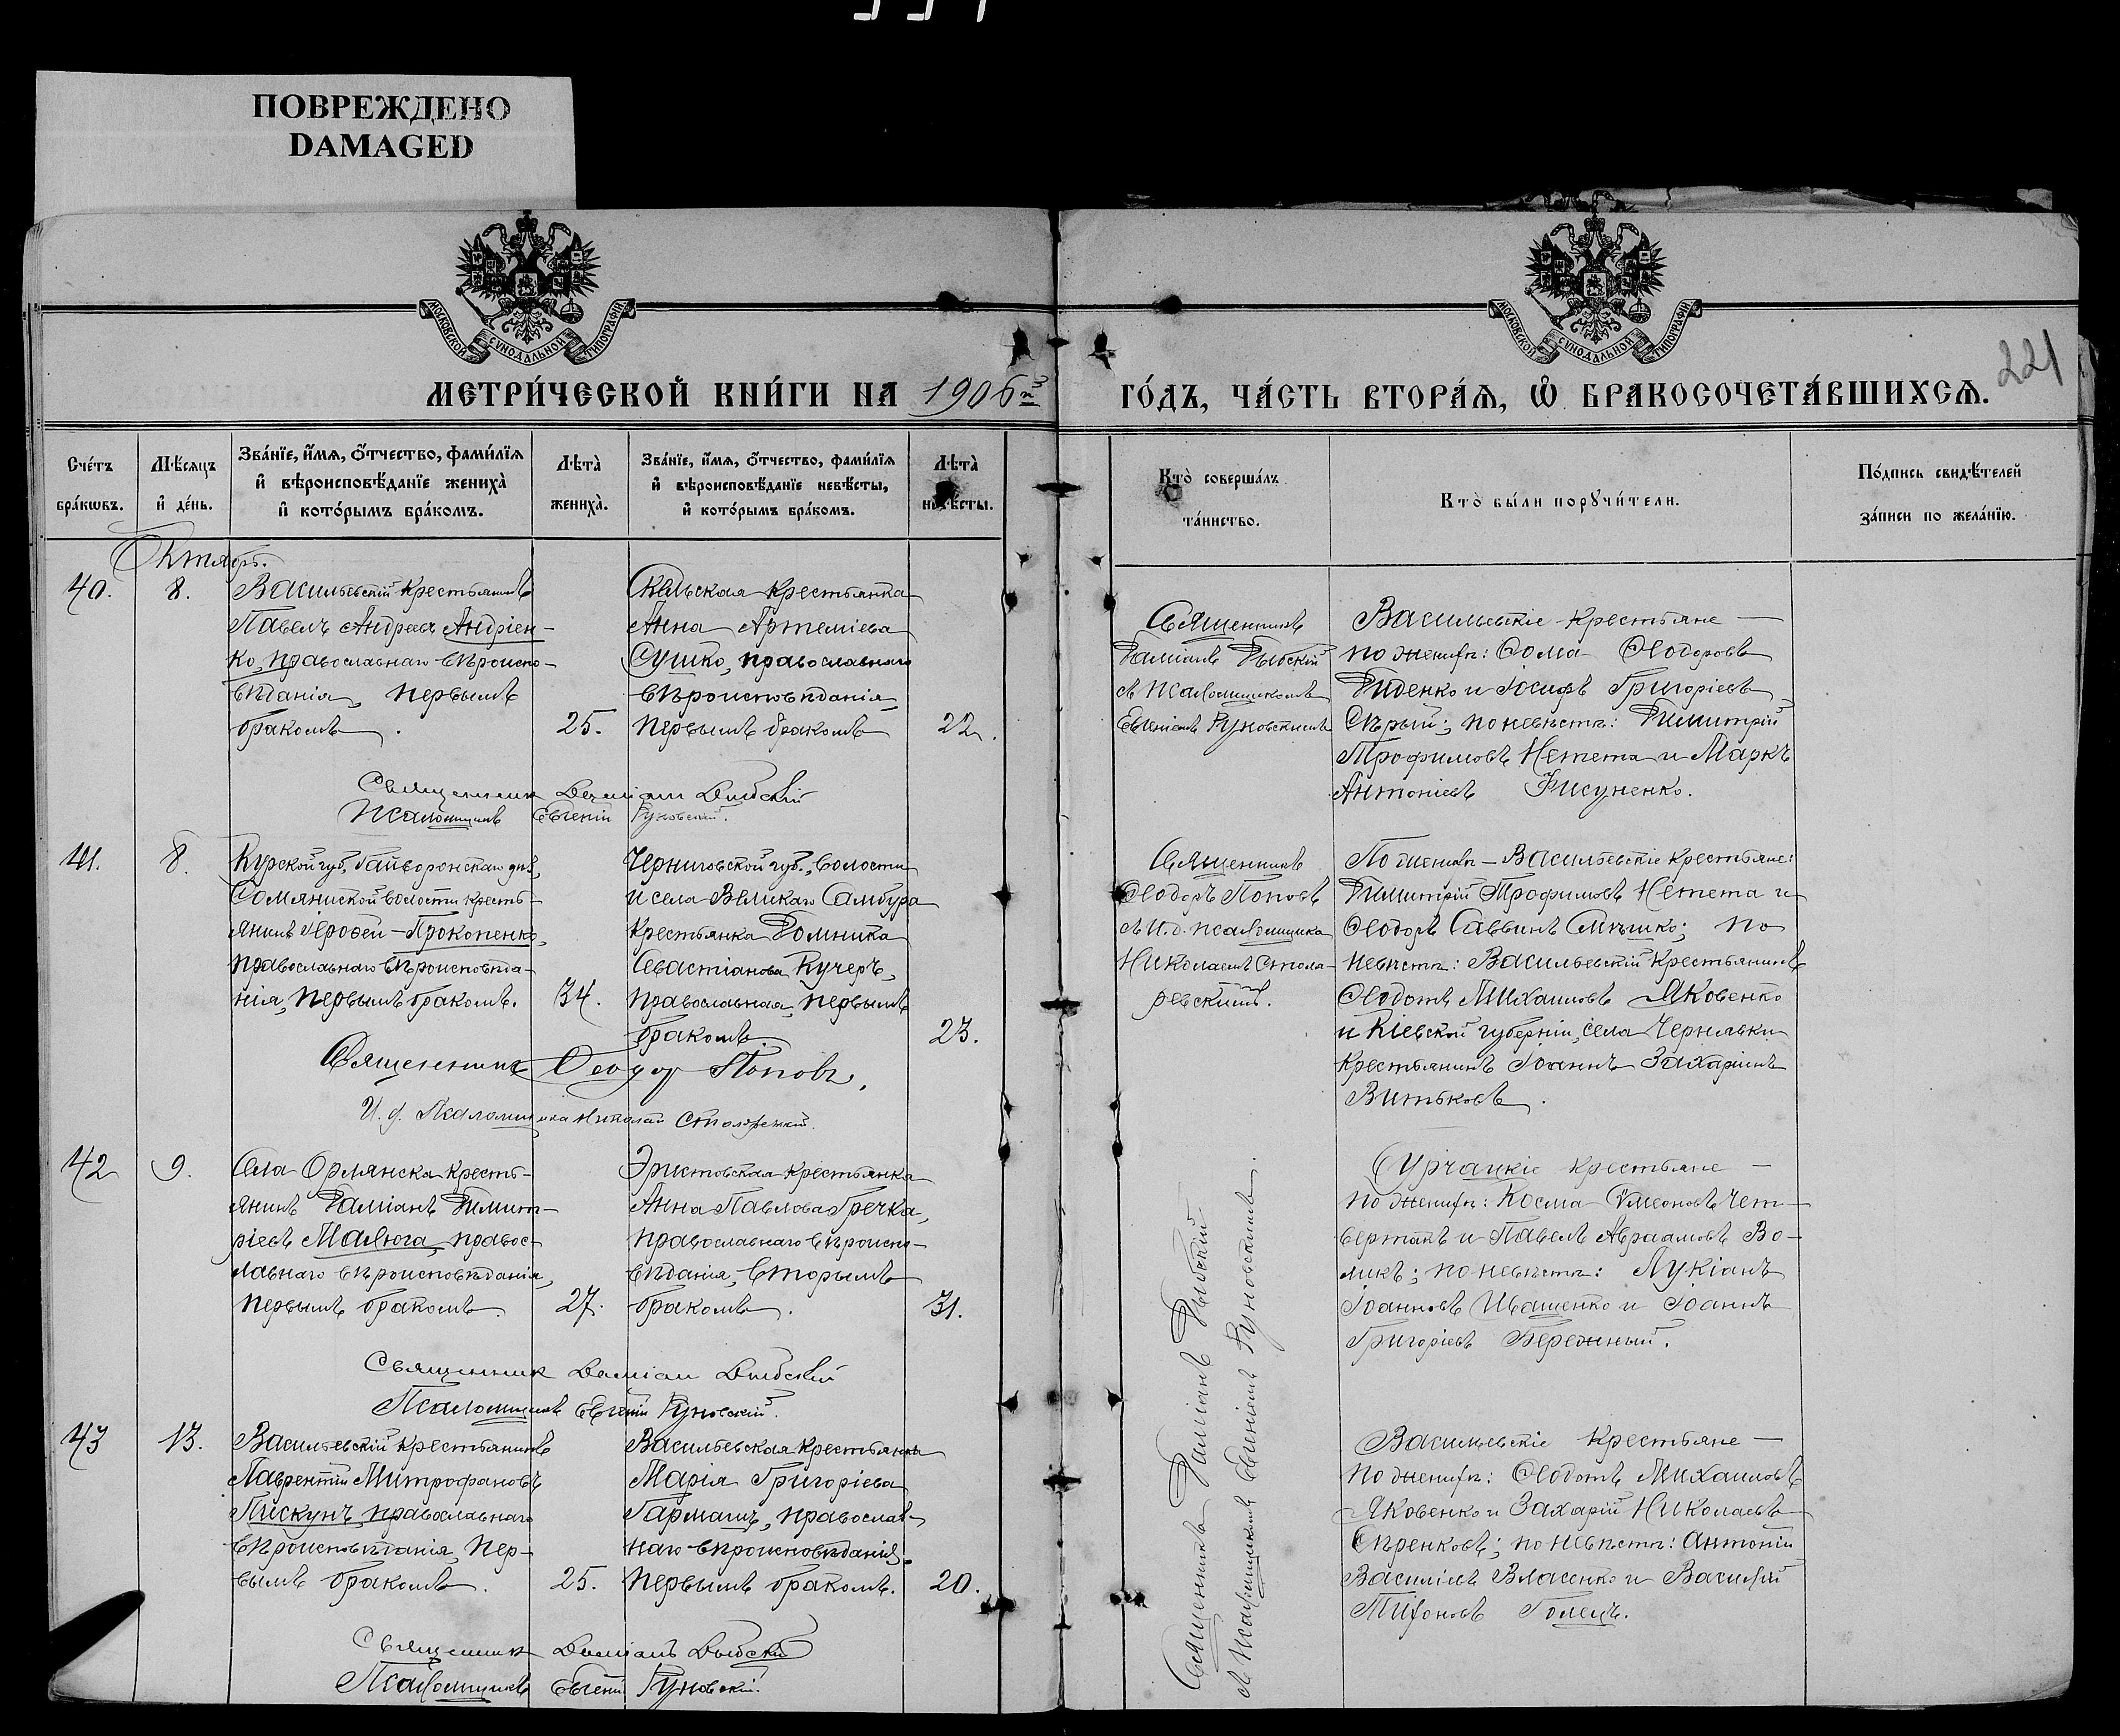 ПОВРЕЖДЕНО
DAMAGED
МОСКОВСКОЙ СѴНОДАЛЬНОЙ ТИПОГРАФІИ
МОСКОВСКОЙ СѴНОДАЛЬНОЙ ТИПОГРАФІИ
МЕТРИ́ЧЕСКОЙ КНИ́ГИ НА 1906й
ГО́ДЪ, ЧА́СТЬ ВТОРА́Я, Ѡ БРАКОСОЧЕТА́ВШИХСЯ.
221
Сче́тъ бра́кѡвъ.
Мѣ́сяцъ и де́нь.
Зва́нїе, и́мя, ѻ́тчество, фами́лїя
и вѣроисповѣ́данїе жениха̀
и кото́рымъ бра́комъ.
Лѣта̀ жениха̀.
Зва́нїе, и́мя, ѻ́тчество, фами́лїя
и вѣроисповѣ́данїе невѣ́сты,
и кото́рымъ бра́комъ.
Лѣта̀ невѣ́сты.
Кто̀ соверша́лъ та́инство.
Кто̀ бы́ли порꙋчи́тели.
По́дпись свидѣ́телей
за́писи по жела́нїю.
Октябрь.
40.
8.
Васильевскій крестьянинъ
Павелъ Андреевъ Андріен-
ко, православнаго вѣроиспо-
вѣданія, первымъ
бракомъ.
25.
Скельская крестьянка
Анна Артеміева
Сушко, православнаго
вѣроисповѣданія,
первымъ бракомъ
22.
Священникъ
Даміанъ Дыбскій
съ псаломщикомъ
Евгеніемъ Руновскимъ
Васильевскіе крестьяне —
по женихѣ: Ѳома Ѳеодоровъ
Диденко и Іосифъ Григоріевъ
Сѣрый; по невѣстѣ: Димитрій
Трофимовъ Нетета и Маркъ
Антоніевъ Фисуненко.
Священник Даміан Дыбскій
Псаломщикъ Евгеній Руновскій.
41.
8.
Курской губ., Гайворонскаго уѣз.,
волости кресть-
янинъ Іероѳей Прокопенко,
православнаго вѣроисповѣда-
нія, первымъ бракомъ.
34.
Черниговской губ., волости
и села Великаго Самбура
крестьянка Домника
Севастіанова Кучеръ,
православная, первымъ
бракомъ.
23.
Священникъ
Ѳеодоръ Поповъ
съ и. д. псаломщика
Николаемъ Столя-
ревскимъ.
По женихѣ — Васильевскіе крестьяне:
Димитрій Трофимовъ Нетета и
Ѳеодоръ Саввинъ; по
невѣстѣ: Васильевскій крестьянинъ
Ѳеодотъ Михаиловъ Яковенко
и Кіевской губерніи, села Чернявки
крестьянинъ Іоаннъ Захаріевъ
Витьковъ.
Священникъ Ѳеодор Поповъ.
И. д. Псаломщика Николай
42
9.
Села Орлянска кресть-
янинъ Даміанъ Димит-
ріевъ Малюга, правос-
лавнаго вѣроисповѣданія,
первымъ бракомъ
27.
Эристовская крестьянка
Анна Павлова Гречка,
православнаго вѣроиспо-
вѣданія, вторымъ
бракомъ.
31.
Священникъ Даміанъ Дыбскій
съ псаломщикомъ Евгеніемъ Руновскимъ.
крестьяне —
по женихѣ: Косма Симеоновъ Чет-
вертакъ и Павелъ Авраамовъ Во-
ликъ; по невѣстѣ: Лукіанъ
Іоанновъ Иващенко и Іоаннъ
Григоріевъ Бережный.
Священник Даміан Дыбскій
Псаломщикъ Евгеній Руновскій.
43
13.
Васильевскій крестьянинъ
Лаврентій Митрофановъ
Пискунъ, православнаго
вѣроисповѣданія, пер-
вымъ бракомъ.
25.
Васильевская крестьянка
Марія Григоріева
Гармашъ, православ-
наго вѣроисповѣданія,
первымъ бракомъ.
20.
Васильевскіе крестьяне —
по женихѣ: Ѳеодотъ Михаиловъ
Яковенко и Захарій Николаевъ
Сѣренковъ; по невѣстѣ: Антоній
Василіевъ Власенко и Василій
Тихоновъ Голецъ.
Священник Даміанъ Дыбскій
Псаломщикъ Евгеній Руновскій.